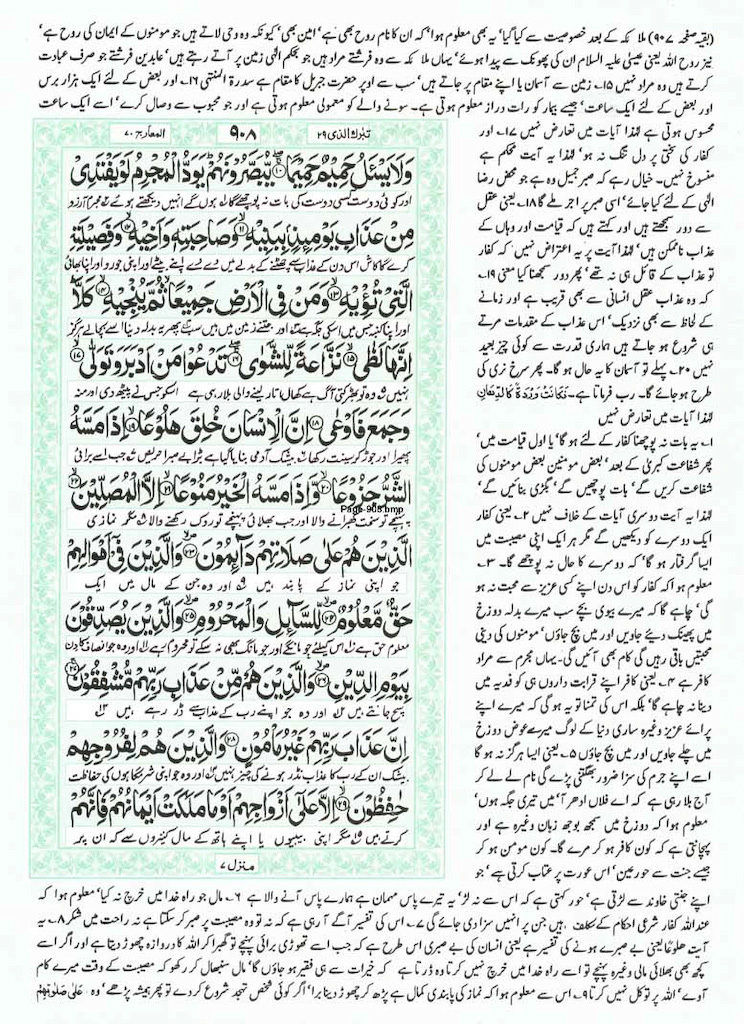 (بقیہ صفحہ ۹۰۷) ملائکہ کے بعد خصوصیت سے کیا گیا' یہ بھی معلوم ہوا' کہ ان کا نام روح بھی ہے' امین بھی' کیونکہ وہ وحی لاتے ہیں جو مومنوں کے ایمان کی روح ہے'
نیز روح اللہ یعنی عیسیٰ علیہ السلام ان کی پھونک سے پیدا ہوئے' یہاں ملائکہ سے وہ فرشتے مراد ہیں جو بحکم الٰہی زمین پر آتے رہتے ہیں' عابدین فرشتے جو صرف عبادت
کرتے ہیں وہ مراد نہیں ۱۵۔ زمین سے آسمان یا اپنے مقام پر جاتے ہیں' سب سے اوپر حضرت جبریل کا مقام ہے سدرۃ المنتہیٰ ۱۶۔ اور بعض کے لئے ایک ہزار برس
اور بعض کے لئے ایک ساعت' جیسے بیمار کو رات دراز معلوم ہوتی ہے۔ سونے والے کو معمولی معلوم ہوتی ہے اور جو محبوب سے وصال کرے' اسے ایک ساعت
محسوس ہوتی ہے لہٰذا آیات میں تعارض نہیں ۱۷۔ اور
کفار کی سختی پر دل تنگ نہ ہو' لہٰذا یہ آیت محکم ہے
منسوخ نہیں۔ خیال رہے کہ صبر جمیل وہ ہے جو محض رضا
الٰہی کے لئے کیا جائے' اسی صبر پر اجر ملے گا ۱۸۔ یعنی عقل
سے دور سمجھتے ہیں اور کہتے ہیں کہ قیامت اور وہاں کے
عذاب ناممکن ہیں' لہٰذا آیت پر یہ اعتراض نہیں' کہ کفار
تو عذاب کے قائل ہی نہ تھے' پھر دور سمجھنا کیا معنی ۱۹۔
کہ وہ عذاب عقل انسانی سے بھی قریب ہے اور زمانے
کے لحاظ سے بھی نزدیک' اس عذاب کے مقدمات مرتے
ہی شروع ہو جاتے ہیں ہماری قدرت سے کوئی چیز بعید
نہیں ۲۰۔ پہلے تو آسمان کا یہ حال ہو گا۔ پھر سرخ نری کی
طرح ہو جائے گا۔ رب فرماتا ہے۔ فَكَانَتْ وَرْدَةً كَالدِّهَانِ
لہٰذا آیات میں تعارض نہیں
۱۔ یہ بات نہ پوچھنا کفار کے لئے ہو گا' یا اول قیامت میں'
پھر شفاعت کبریٰ کے بعد' بعض مومنین بعض مومنوں کی
شفاعت کریں گے' بات پوچھیں گے' بگڑی بنائیں گے'
لہٰذا یہ آیت دوسری آیات کے خلاف نہیں ۲۔ یعنی کفار
ایک دوسرے کو دیکھیں گے مگر ہر ایک اپنی مصیبت میں
ایسا گرفتار ہو گا' کہ دوسرے کا حال نہ پوچھے گا۔ ۳۔
معلوم ہوا کہ کفار کو اس دن اپنے کسی عزیز سے محبت نہ ہو
گی' چاہے گا کہ میرے بیوی بچے سب میرے بدلہ دوزخ
میں پھینک دیئے جاویں اور میں بچ جاؤں' مومنوں کی دینی
محبتیں باقی رہیں گی کام بھی آئیں گی۔ یہاں مجرم سے مراد
کافر ہے ۴۔ یعنی کافر اپنے قرابت داروں ہی کو فدیہ میں
دینا نہ چاہے گا' بلکہ اس کی تمنا تو یہ ہو گی کہ میرے اپنے
پرائے عزیز وغیرہ ساری دنیا کے لوگ میرے عوض دوزخ
میں چلے جاویں اور میں بچ جاؤں ۵۔ یعنی ایسا ہرگز نہ ہو گا
اسے اپنے جرم کی سزا ضرور بھگتنی پڑے گی نام لے لے کر
آج بلا رہی ہے کہ اے فلاں ادھر آ' میں تیری جگہ ہوں'
معلوم ہوا کہ دوزخ میں سمجھ بوجھ زبان وغیرہ ہے اور
پہچانتی ہے کہ کون کافر ہو کر مرے گا۔ کون مومن ہو کر
جیسے جنت سے حورعین' اس عورت پر عتاب کرتی ہے' جو
تبٰرک الذی ۲۹
۹۰۸
المعارج ۷۰
وَلَا يَسْـَٔلُ حَمِيْمٌ حَمِيْمًا ۱۰ يُّبَصَّرُوْنَهُمْ يَوَدُّ الْمُجْرِمُ لَوْ يَفْتَدِيْ
اور کوئی دوست کسی دوست کی بات نہ پوچھے گا ہوں گے انہیں دیکھتے ہوئے مجرم آرزو
مِنْ عَذَابِ يَوْمِىِٕذٍۭ بِبَنِيْهِ ۱۱ وَصَاحِبَتِهٖ وَاَخِيْهِ ۱۲ وَفَصِيْلَتِهِ
کرے گا کاش اس دن کے عذاب سے چھٹنے کے بدلے میں دے دے اپنے بیٹے اور اپنی جورو اور اپنا بھائی
الَّتِيْ تُـْٔوِيْهِ ۱۳ وَمَنْ فِي الْاَرْضِ جَمِيْعًا ثُمَّ يُنْجِيْهِ ۱۴ كَلَّا
اور اپنا کنبہ جس میں اسکی جگہ ہے اور جتنے زمین میں ہیں سب پھر یہ بدلہ دینا اسے بچا لے ہرگز
اِنَّهَا لَظٰى ۱۵ نَزَّاعَةً لِّلشَّوٰى ۱۶ تَدْعُوْا مَنْ اَدْبَرَ وَتَوَلّٰى ۱۷
نہیں وہ تو بھڑکتی آگ ہے کھال اتار لینے والی بلا رہی ہے اسکو جس نے پیٹھ دی اور منہ
وَجَمَعَ فَاَوْعٰى ۱۸ اِنَّ الْاِنْسَانَ خُلِقَ هَلُوْعًا ۱۹ اِذَا مَسَّهُ
پھیرا اور جوڑ کر سینت رکھا بیشک آدمی بنایا گیا ہے بڑا بے صبرا حریص جب اسے برائی
الشَّرُّ جَزُوْعًا ۲۰ وَّاِذَا مَسَّهُ الْخَيْرُ مَنُوْعًا ۲۱ اِلَّا الْمُصَلِّيْنَ ۲۲
پہنچے تو سخت گھبرانے والا اور جب بھلائی پہنچے تو روک رکھنے والا مگر نمازی
Page-908.bmp
الَّذِيْنَ هُمْ عَلٰى صَلَاتِهِمْ دَآىِٕمُوْنَ ۲۳ وَالَّذِيْنَ فِيْٓ اَمْوَالِهِمْ
جو اپنی نماز کے پابند ہیں اور وہ جن کے مال میں ایک
حَقٌّ مَّعْلُوْمٌ ۲۴ لِّلسَّآىِٕلِ وَالْمَحْرُوْمِ ۲۵ وَالَّذِيْنَ يُصَدِّقُوْنَ
معلوم حق ہے اس کیلئے جو مانگے اور جو مانگ بھی نہ سکے تو محروم رہے اور وہ جو انصاف کا دن
بِيَوْمِ الدِّيْنِ ۲۶ وَالَّذِيْنَ هُمْ مِّنْ عَذَابِ رَبِّهِمْ مُّشْفِقُوْنَ ۲۷
سچ جانتے ہیں اور وہ جو اپنے رب کے عذاب سے ڈر رہے ہیں
اِنَّ عَذَابَ رَبِّهِمْ غَيْرُ مَاْمُوْنٍ ۲۸ وَالَّذِيْنَ هُمْ لِفُرُوْجِهِمْ
بیشک ان کے رب کا عذاب نڈر ہونے کی چیز نہیں اور وہ جو اپنی شرمگاہوں کی حفاظت
حٰفِظُوْنَ ۲۹ اِلَّا عَلٰٓى اَزْوَاجِهِمْ اَوْ مَا مَلَكَتْ اَيْمَانُهُمْ فَاِنَّهُمْ
کرتے ہیں مگر اپنی بیبیوں یا اپنے ہاتھ کے مال کنیزوں سے کہ ان پر
منزل ۷
اپنے جنتی خاوند سے لڑتی ہے' حور کہتی ہے کہ اس سے نہ لڑ' یہ تیرے پاس مہمان ہے ہمارے پاس آنے والا ہے ۶۔ مال جو راہ خدا میں خرچ نہ کیا' معلوم ہوا کہ
عنداللہ کفار شرعی احکام کے مکلف ہیں جن پر انہیں سزا دی جائے گی ۷۔ اس کی تفسیر آگے آ رہی ہے کہ نہ تو وہ مصیبت پر صبر کر سکتا ہے نہ راحت میں شکر ۸۔ یہ
آیت ھلوعًا یعنی بے صبرے ہونے کی تفسیر ہے یعنی انسان کی بے صبری اس طرح ہے کہ جب اسے تھوڑی برائی پہنچے تو گھبرا کر اللہ کا دروازہ چھوڑ دیتا ہے اور اگر اسے
کچھ بھی بھلائی مالی وغیرہ پہنچے تو اسے راہ خدا میں خرچ نہیں کرتا وہ ڈرتا ہے کہ خیرات سے ہی فقیر ہو جاؤں گا' مال سنبھال کر رکھو کہ مصیبت کے وقت میرے کام
آوے' اللہ پر توکل نہیں کرتا ۹۔ اس سے معلوم ہوا کہ نماز کی پابندی کمال ہے پڑھ کر چھوڑ دینا برا' اگر کوئی شخص تہجد شروع کر دے تو پھر ہمیشہ پڑھے' وہ عَلٰی صَلٰوتِهِمْ